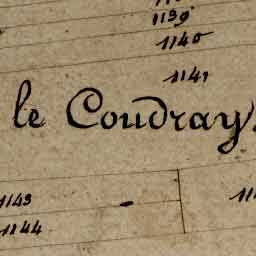 1139
1140
1141
le Coudray.
1143
1144